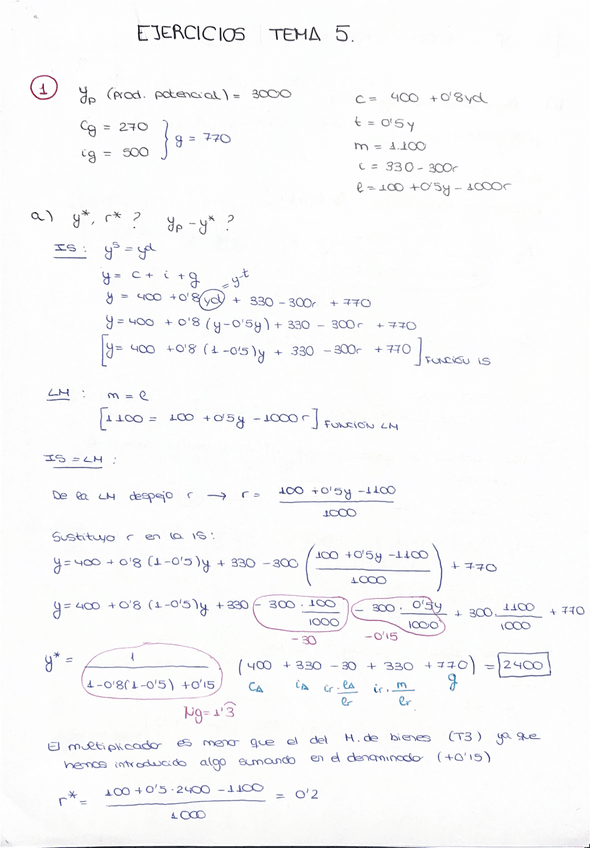 EJERCICIOS TEMA 5.
1 yp (prod. potencial) = 3000
cg = 270
ig = 500
} g = 770
c = 400 + 0'8yd
t = 0'5y
m = 1.100
c = 330 - 300r
l = 100 + 0'5y - 1000r
a) y*, r* ? yp - y* ?
IS: ys = yd
y = c + i + g
= y-t
y = 400 + 0'8 yd + 330 - 300r + 770
y = 400 + 0'8 (y - 0'5y) + 330 - 300r + 770
[y = 400 + 0'8 (1 - 0'5)y + 330 - 300r + 770] FUNCIÓN IS
LM: m = l
[1100 = 100 + 0'5y - 1000r] FUNCIÓN LM
IS = LM:
De la LM despejo r → r = (100 + 0'5y - 1100) / 1000
Sustituyo r en la IS:
y = 400 + 0'8 (1 - 0'5)y + 330 - 300 ((100 + 0'5y - 1100) / 1000) + 770
y = 400 + 0'8 (1 - 0'5)y + 330 - 300 · 100/1000 - 300 · 0'5y/1000 + 300 · 1100/1000 + 770
-30 -0'15
y* = 1 / (1 - 0'8(1 - 0'5) + 0'15) (400 + 330 - 30 + 330 + 770) = 2400
CA iA ir · lA/lr ir · m/lr g
Ng = 1'3
El multiplicador es menor que el del M. de bienes (T3) ya que
hemos introducido algo sumando en el denominador (+0'15)
r* = (100 + 0'5 · 2400 - 1100) / 1000 = 0'2